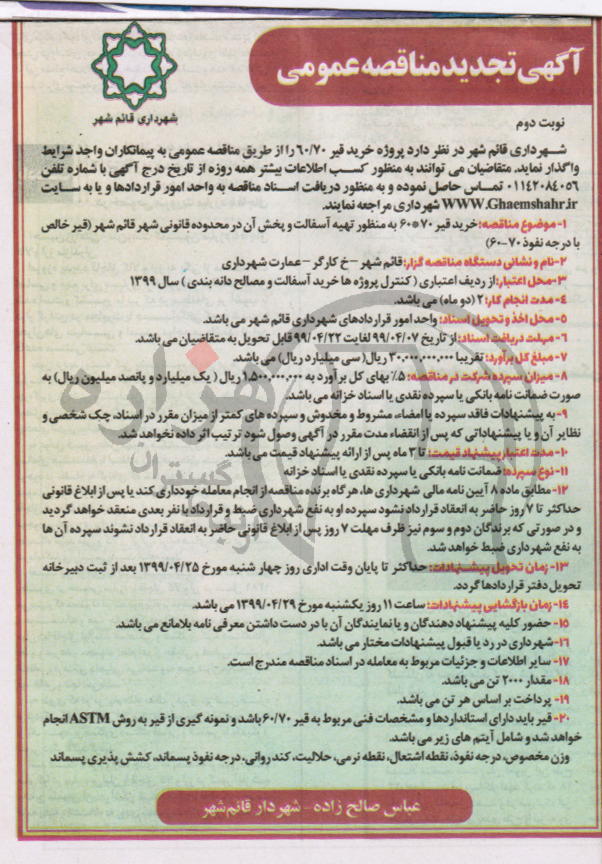 آگهی تجدید مناقصه عمومی
شهرداری قائم شهر
نوبت دوم
شهرداری قائم شهر در نظر دارد پروژه خرید قیر ۶۰/۷۰ را از طریق مناقصه عمومی به پیمانکاران واجد شرایط
واگذار نماید. متقاضیان می توانند به منظور کسب اطلاعات بیشتر همه روزه از تاریخ درج آگهی با شماره تلفن
۰۱۱۴۲۰۸۴۰۵۶ تماس حاصل نموده و به منظور دریافت اسناد مناقصه به واحد امور قراردادها و یا به سایت
WWW.Ghaemshahr.ir شهرداری مراجعه نمایند.
۱- موضوع مناقصه: خرید قیر ۷۰*۶۰ به منظور تهیه آسفالت و پخش آن در محدوده قانونی شهر قائم شهر (قیر خالص
با درجه نفوذ ۷۰-۶۰)
۲- نام و نشانی دستگاه مناقصه گزار: قائم شهر - خ کارگر - عمارت شهرداری
۳- محل اعتبار: از ردیف اعتباری (کنترل پروژه ها خرید آسفالت و مصالح دانه بندی) سال ۱۳۹۹
۴- مدت انجام کار: ۲ (دو ماه) می باشد.
۵- محل اخذ و تحویل اسناد: واحد امور قراردادهای شهرداری قائم شهر می باشد.
۶- مهلت دریافت اسناد: از تاریخ ۹۹/۰۴/۰۷ لغایت ۹۹/۰۴/۲۲ قابل تحویل به متقاضیان می باشد.
۷- مبلغ کل برآورد: تقریبا ۳۰,۰۰۰,۰۰۰,۰۰۰ ریال (سی میلیارد ریال) می باشد.
۸- میزان سپرده شرکت در مناقصه: ۵٪ بهای کل برآورد به ۱,۵۰۰,۰۰۰,۰۰۰ ریال (یک میلیارد و پانصد میلیون ریال) به
صورت ضمانت نامه بانکی یا سپرده نقدی یا اسناد خزانه می باشد.
۹- به پیشنهادات فاقد سپرده یا امضاء، مشروط و مخدوش و سپرده های کمتر از میزان مقرر در اسناد، چک شخصی و
نظایر آن و یا پیشنهاداتی که پس از انقضاء مدت مقرر در آگهی وصول شود ترتیب اثر داده نخواهد شد.
۱۰- مدت اعتبار پیشنهاد قیمت: تا ۳ ماه پس از ارائه پیشنهاد قیمت می باشد.
۱۱- نوع سپرده: ضمانت نامه بانکی یا سپرده نقدی یا اسناد خزانه
۱۲- مطابق ماده ۸ آیین نامه مالی شهرداری ها، هرگاه برنده مناقصه از انجام معامله خودداری کند یا پس از ابلاغ قانونی
حداکثر تا ۷ روز حاضر به انعقاد قرارداد نشود سپرده او به نفع شهرداری ضبط و قرارداد با نفر بعدی منعقد خواهد گردید
و در صورتی که برندگان دوم و سوم نیز ظرف مهلت ۷ روز پس از ابلاغ قانونی حاضر به انعقاد قرارداد نشوند سپرده آن ها
به نفع شهرداری ضبط خواهد شد.
۱۳- زمان تحویل پیشنهادات: حداکثر تا پایان وقت اداری روز چهار شنبه مورخ ۱۳۹۹/۰۴/۲۵ بعد از ثبت دبیرخانه
تحویل دفتر قراردادها گردد.
۱۴- زمان بازگشایی پیشنهادات: ساعت ۱۱ روز یکشنبه مورخ ۱۳۹۹/۰۴/۲۹ می باشد.
۱۵- حضور کلیه پیشنهاد دهندگان و یا نمایندگان آن با در دست داشتن معرفی نامه بلامانع می باشد.
۱۶- شهرداری در رد یا قبول پیشنهادات مختار می باشد.
۱۷- سایر اطلاعات و جزئیات مربوط به معامله در اسناد مناقصه مندرج است.
۱۸- مقدار ۲۰۰۰ تن می باشد.
۱۹- پرداخت بر اساس هر تن می باشد.
۲۰- قیر باید دارای استانداردها و مشخصات فنی مربوط به قیر ۶۰/۷۰ باشد و نمونه گیری از قیر به روش ASTM انجام
خواهد شد و شامل آیتم های زیر می باشد.
وزن مخصوص، درجه نفوذ، نقطه اشتعال، نقطه نرمی، حلالیت، کند روانی، درجه نفوذ پسماند، کشش پذیری پسماند
عباس صالح زاده - شهردار قائم شهر
هزاره
گستران